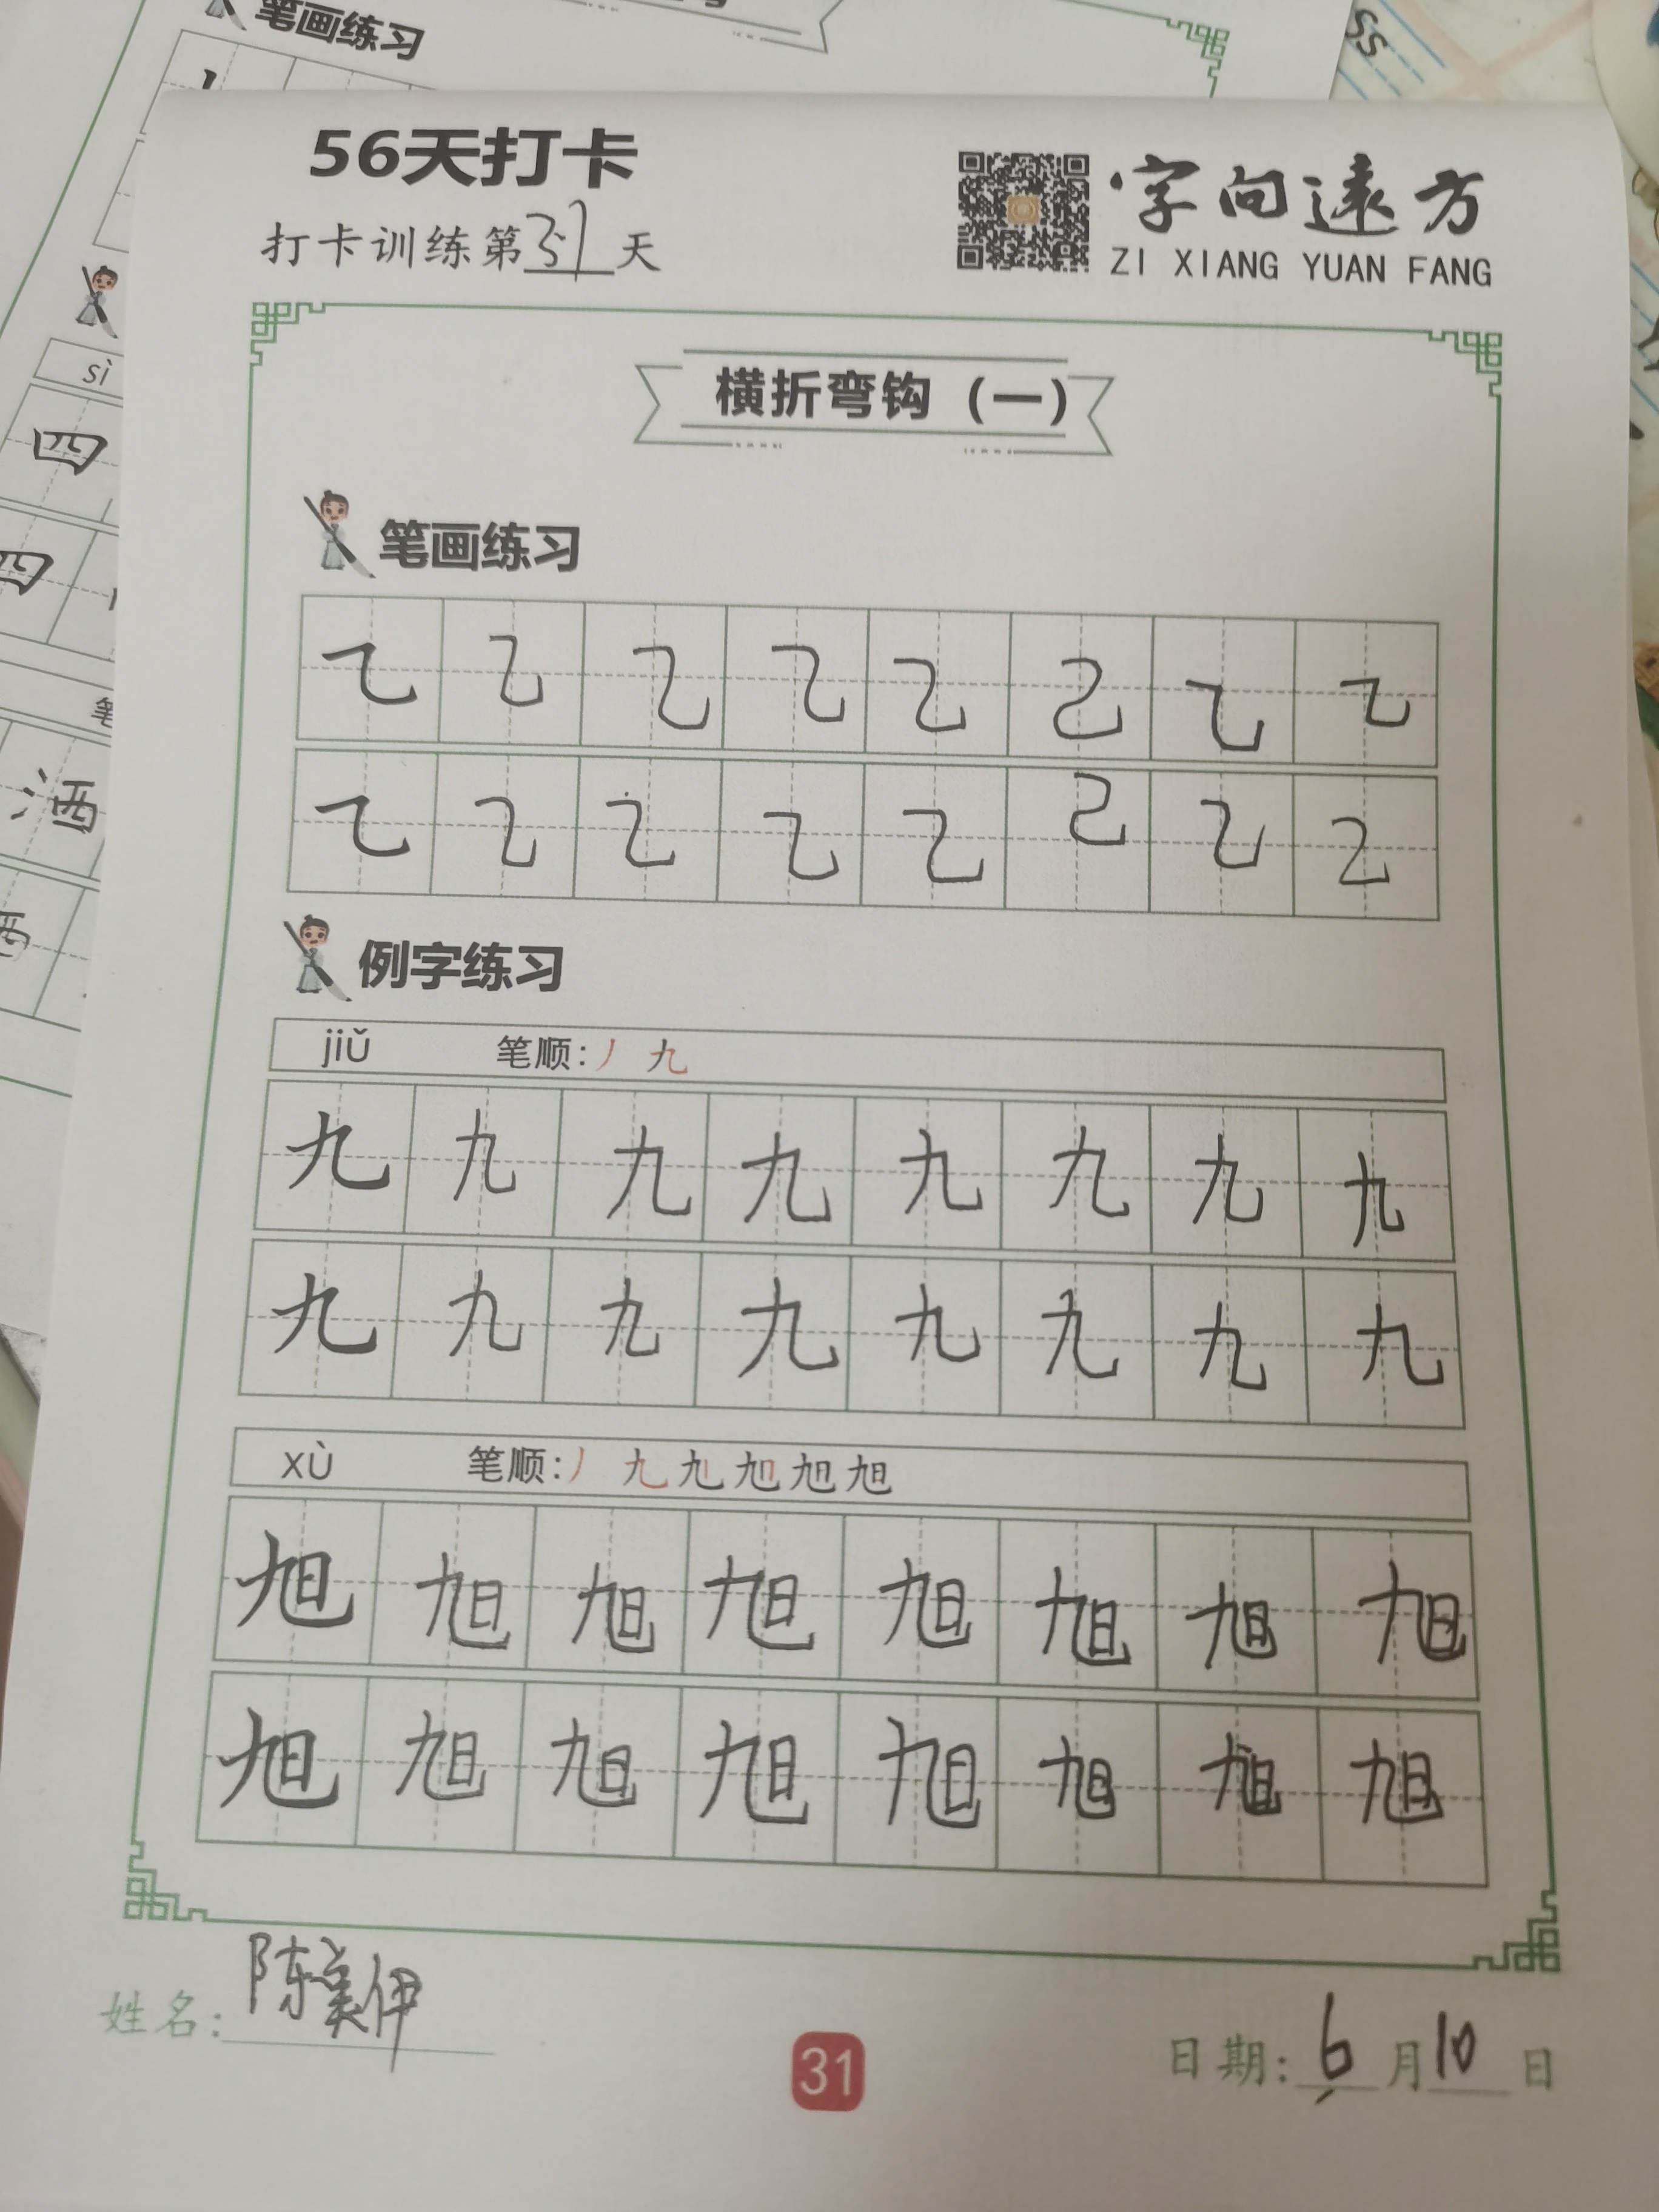 笔画练习
ss
sì
四
四
笔
洒
西
56天打卡
打卡训练第31天
字向远方
ZI XIANG YUAN FANG
横折弯钩（一）
笔画练习
㇈ ㇈ ㇈ ㇈ ㇈ ㇈ ㇈ ㇈
㇈ ㇈ ㇈ ㇈ ㇈ ㇈ ㇈ ㇈
例字练习
jiǔ 笔顺:丿 九
九 九 九 九 九 九 九 九
九 九 九 九 九 九 九 九
xù 笔顺:丿 九 旭 旭 旭 旭
旭 旭 旭 旭 旭 旭 旭 旭
旭 旭 旭 旭 旭 旭 旭 旭
姓名:陈美伊
31
日期:6月10日